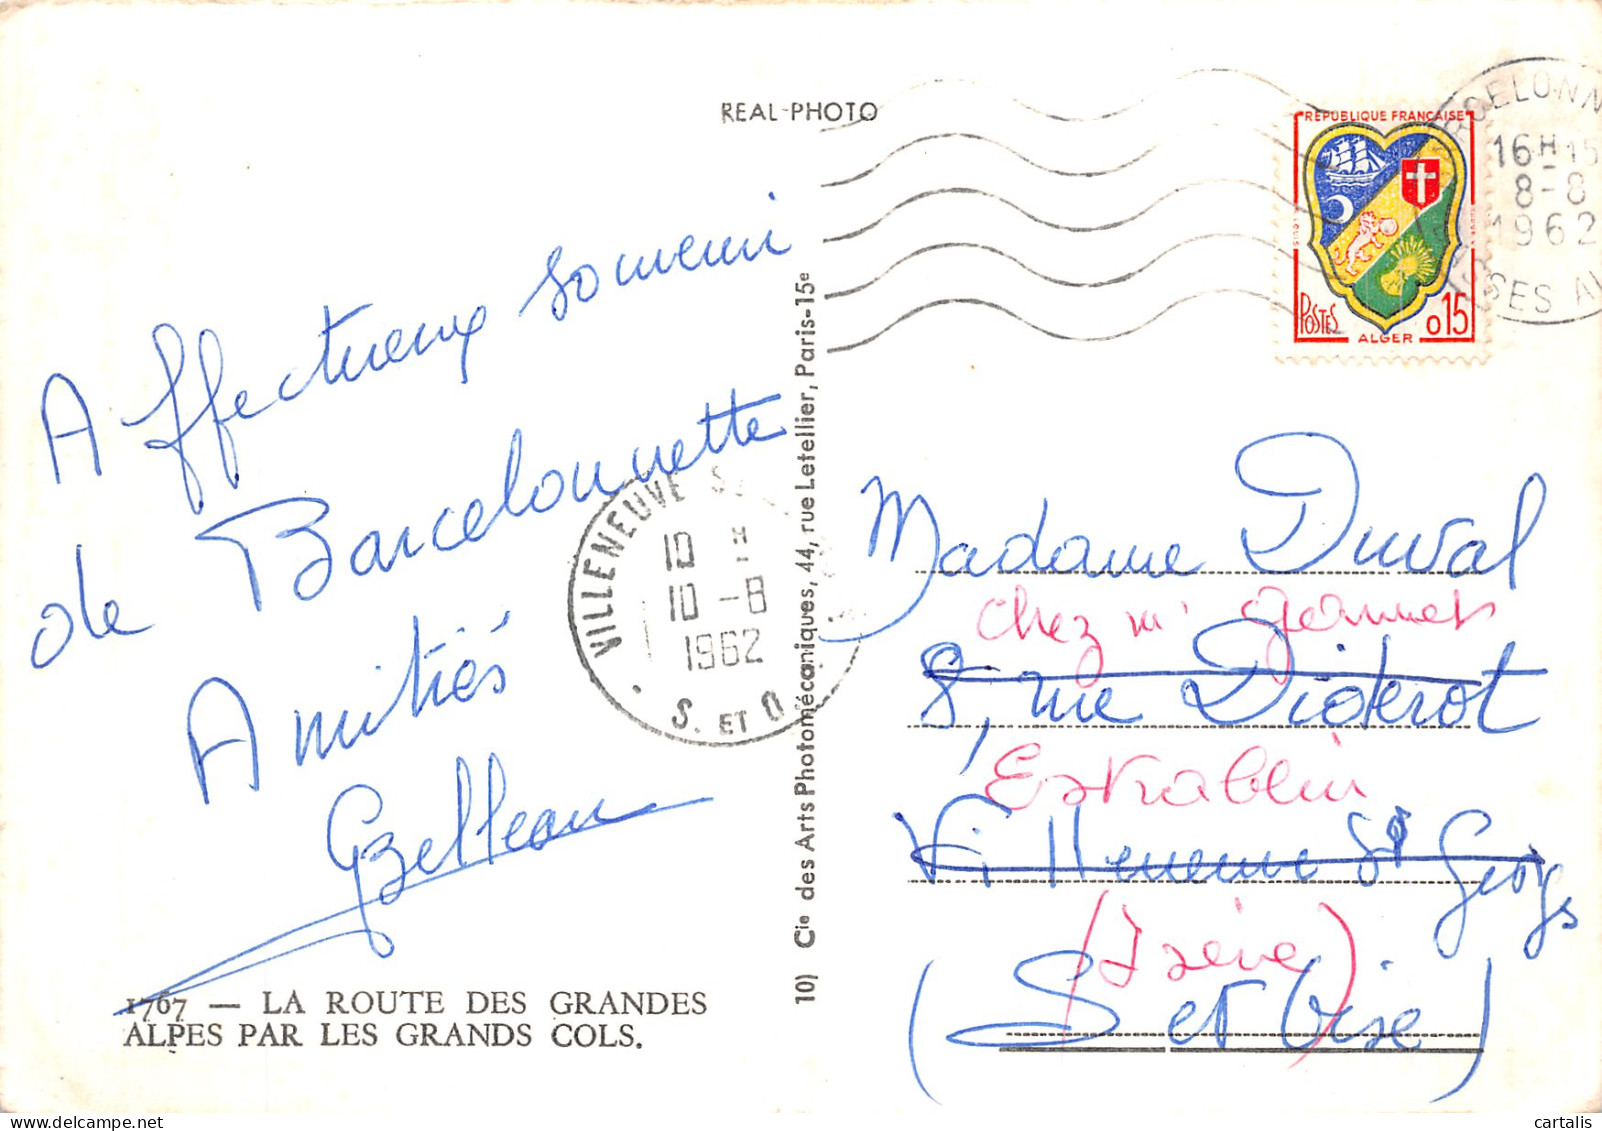 REAL-PHOTO
Affectueux souvenir
de Barcelonnette
Amitiés
GBelleau
1767 — LA ROUTE DES GRANDES
ALPES PAR LES GRANDS COLS.
10) Cie des Arts Photomécaniques, 44, rue Letellier, Paris-15e
VILLENEUVE S
10 H
10 -8
1962
S. ET O
RÉPUBLIQUE FRANÇAISE
POSTES
0,15
ALGER
RCELONN
16H15
8-8
1962
SES A
Madame Duval
chez Mr
8, rue Diderot
Estrablin
Villeneuve St Georges
(Isère)
(S et Oise)
cartalis